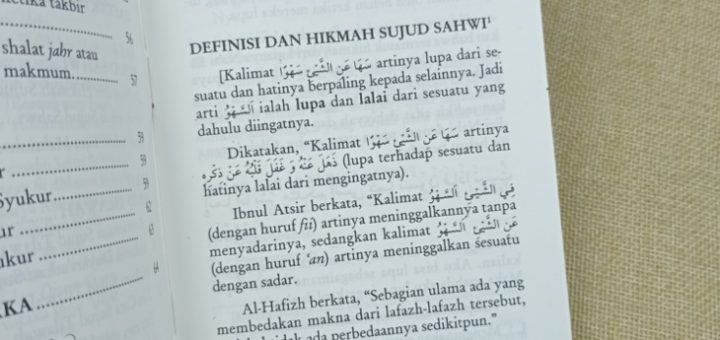 takbir
56
shalat jahr atau
makmum
57
59
59
Syukur
59
ur
62
ukur
63
64
KA
DEFINISI DAN HIKMAH SUJUD SAHWI¹
[Kalimat سَهَا عَنِ الشَّيْئِ سَهْوًا artinya lupa dari se-
suatu dan hatinya berpaling kepada selainnya. Jadi
arti اَلسَّهْوُ ialah lupa dan lalai dari sesuatu yang
dahulu diingatnya.
Dikatakan, “Kalimat سَهَا عَنِ الشَّيْئِ سَهْوًا artinya
ذَهَلَ عَنْهُ وَ غَفَلَ قَلْبُهُ عَنْ ذِكْرِهِ (lupa terhadap sesuatu dan
hatinya lalai dari mengingatnya).
Ibnul Atsir berkata, “Kalimat فِي الشَّيْئِ اَلسَّهْوُ
(dengan huruf fii) artinya meninggalkannya tanpa
menyadarinya, sedangkan kalimat عَنِ الشَّيْئِ اَلسَّهْوُ
(dengan huruf ‘an) artinya meninggalkan sesuatu
dengan sadar.
Al-Hafizh berkata, “Sebagian ulama ada yang
membedakan makna dari lafazh-lafazh tersebut,
ada perbedaannya sedikitpun.”